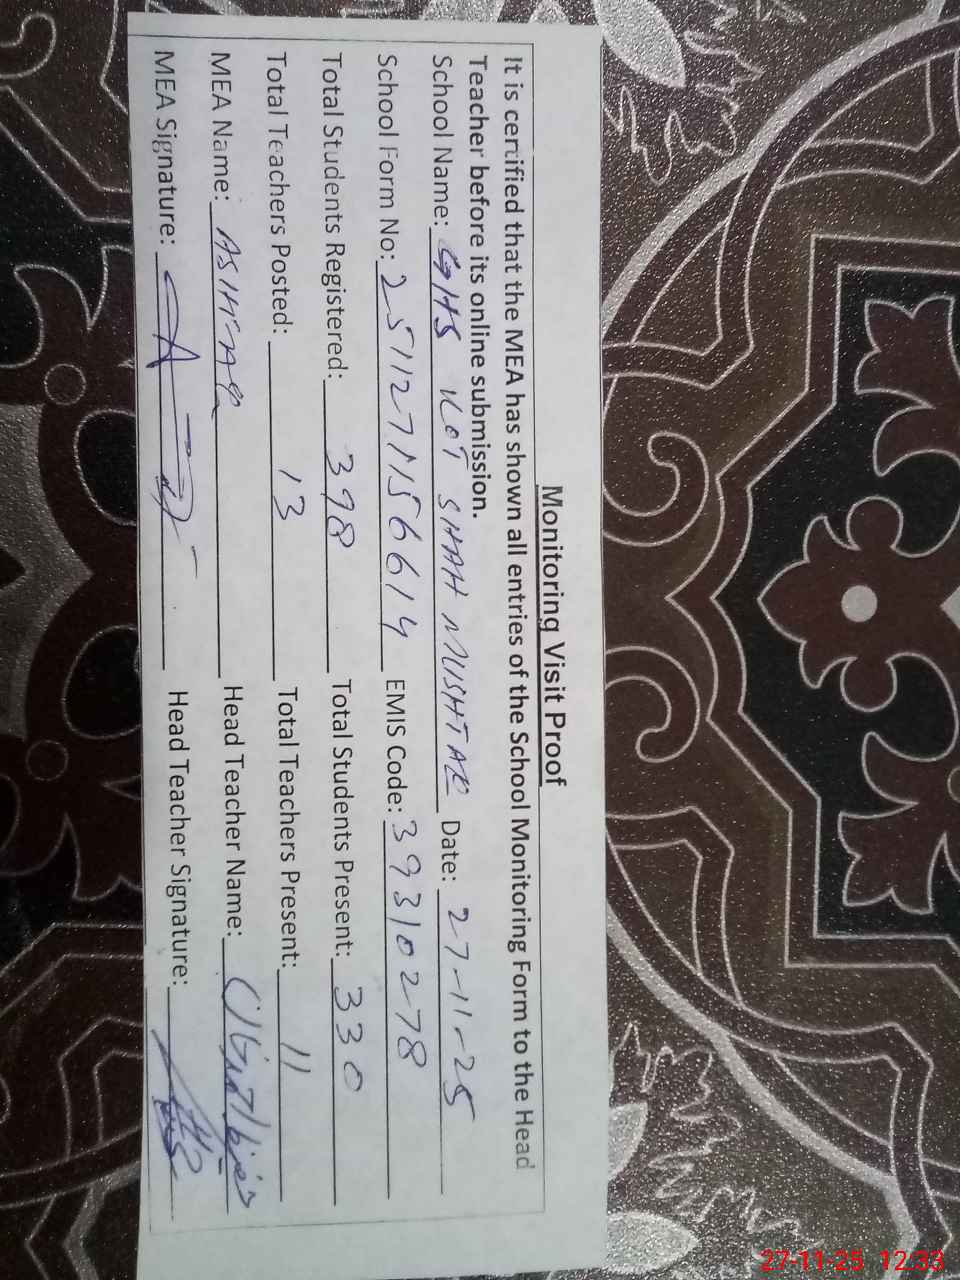 Monitoring Visit Proof
It is certified that the MEA has shown all entries of the School Monitoring Form to the Head
Teacher before its online submission.
School Name: GHS KOT SHAH MUSHTAQ Date: 27-11-25
School Form No: 2511271156614 EMIS Code: 39310278
Total Students Registered: 398 Total Students Present: 330
Total Teachers Posted: 13 Total Teachers Present: 11
MEA Name: Head Teacher Name:
MEA Signature: Head Teacher Signature:
27-11-25 12:33